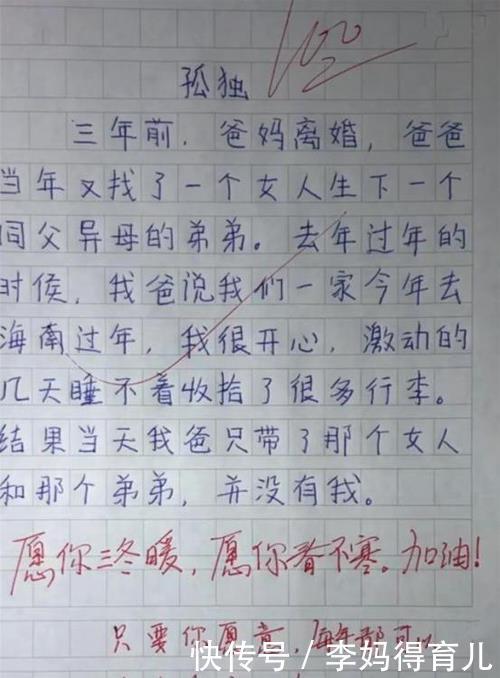 100
孤独
三年前，爸妈离婚，爸爸
当年又找了一个女人生下一个
同父异母的弟弟。去年过年的
时候，我爸说我们一家今年去
海南过年，我很开心，激动的
几天睡不着收拾了很多行李。
结果当天我爸只带了那个女人
和那个弟弟，并没有我。
愿你三冬暖，愿你春不寒。加油！
只要你愿意，每年都可以
快传号／李妈得育儿